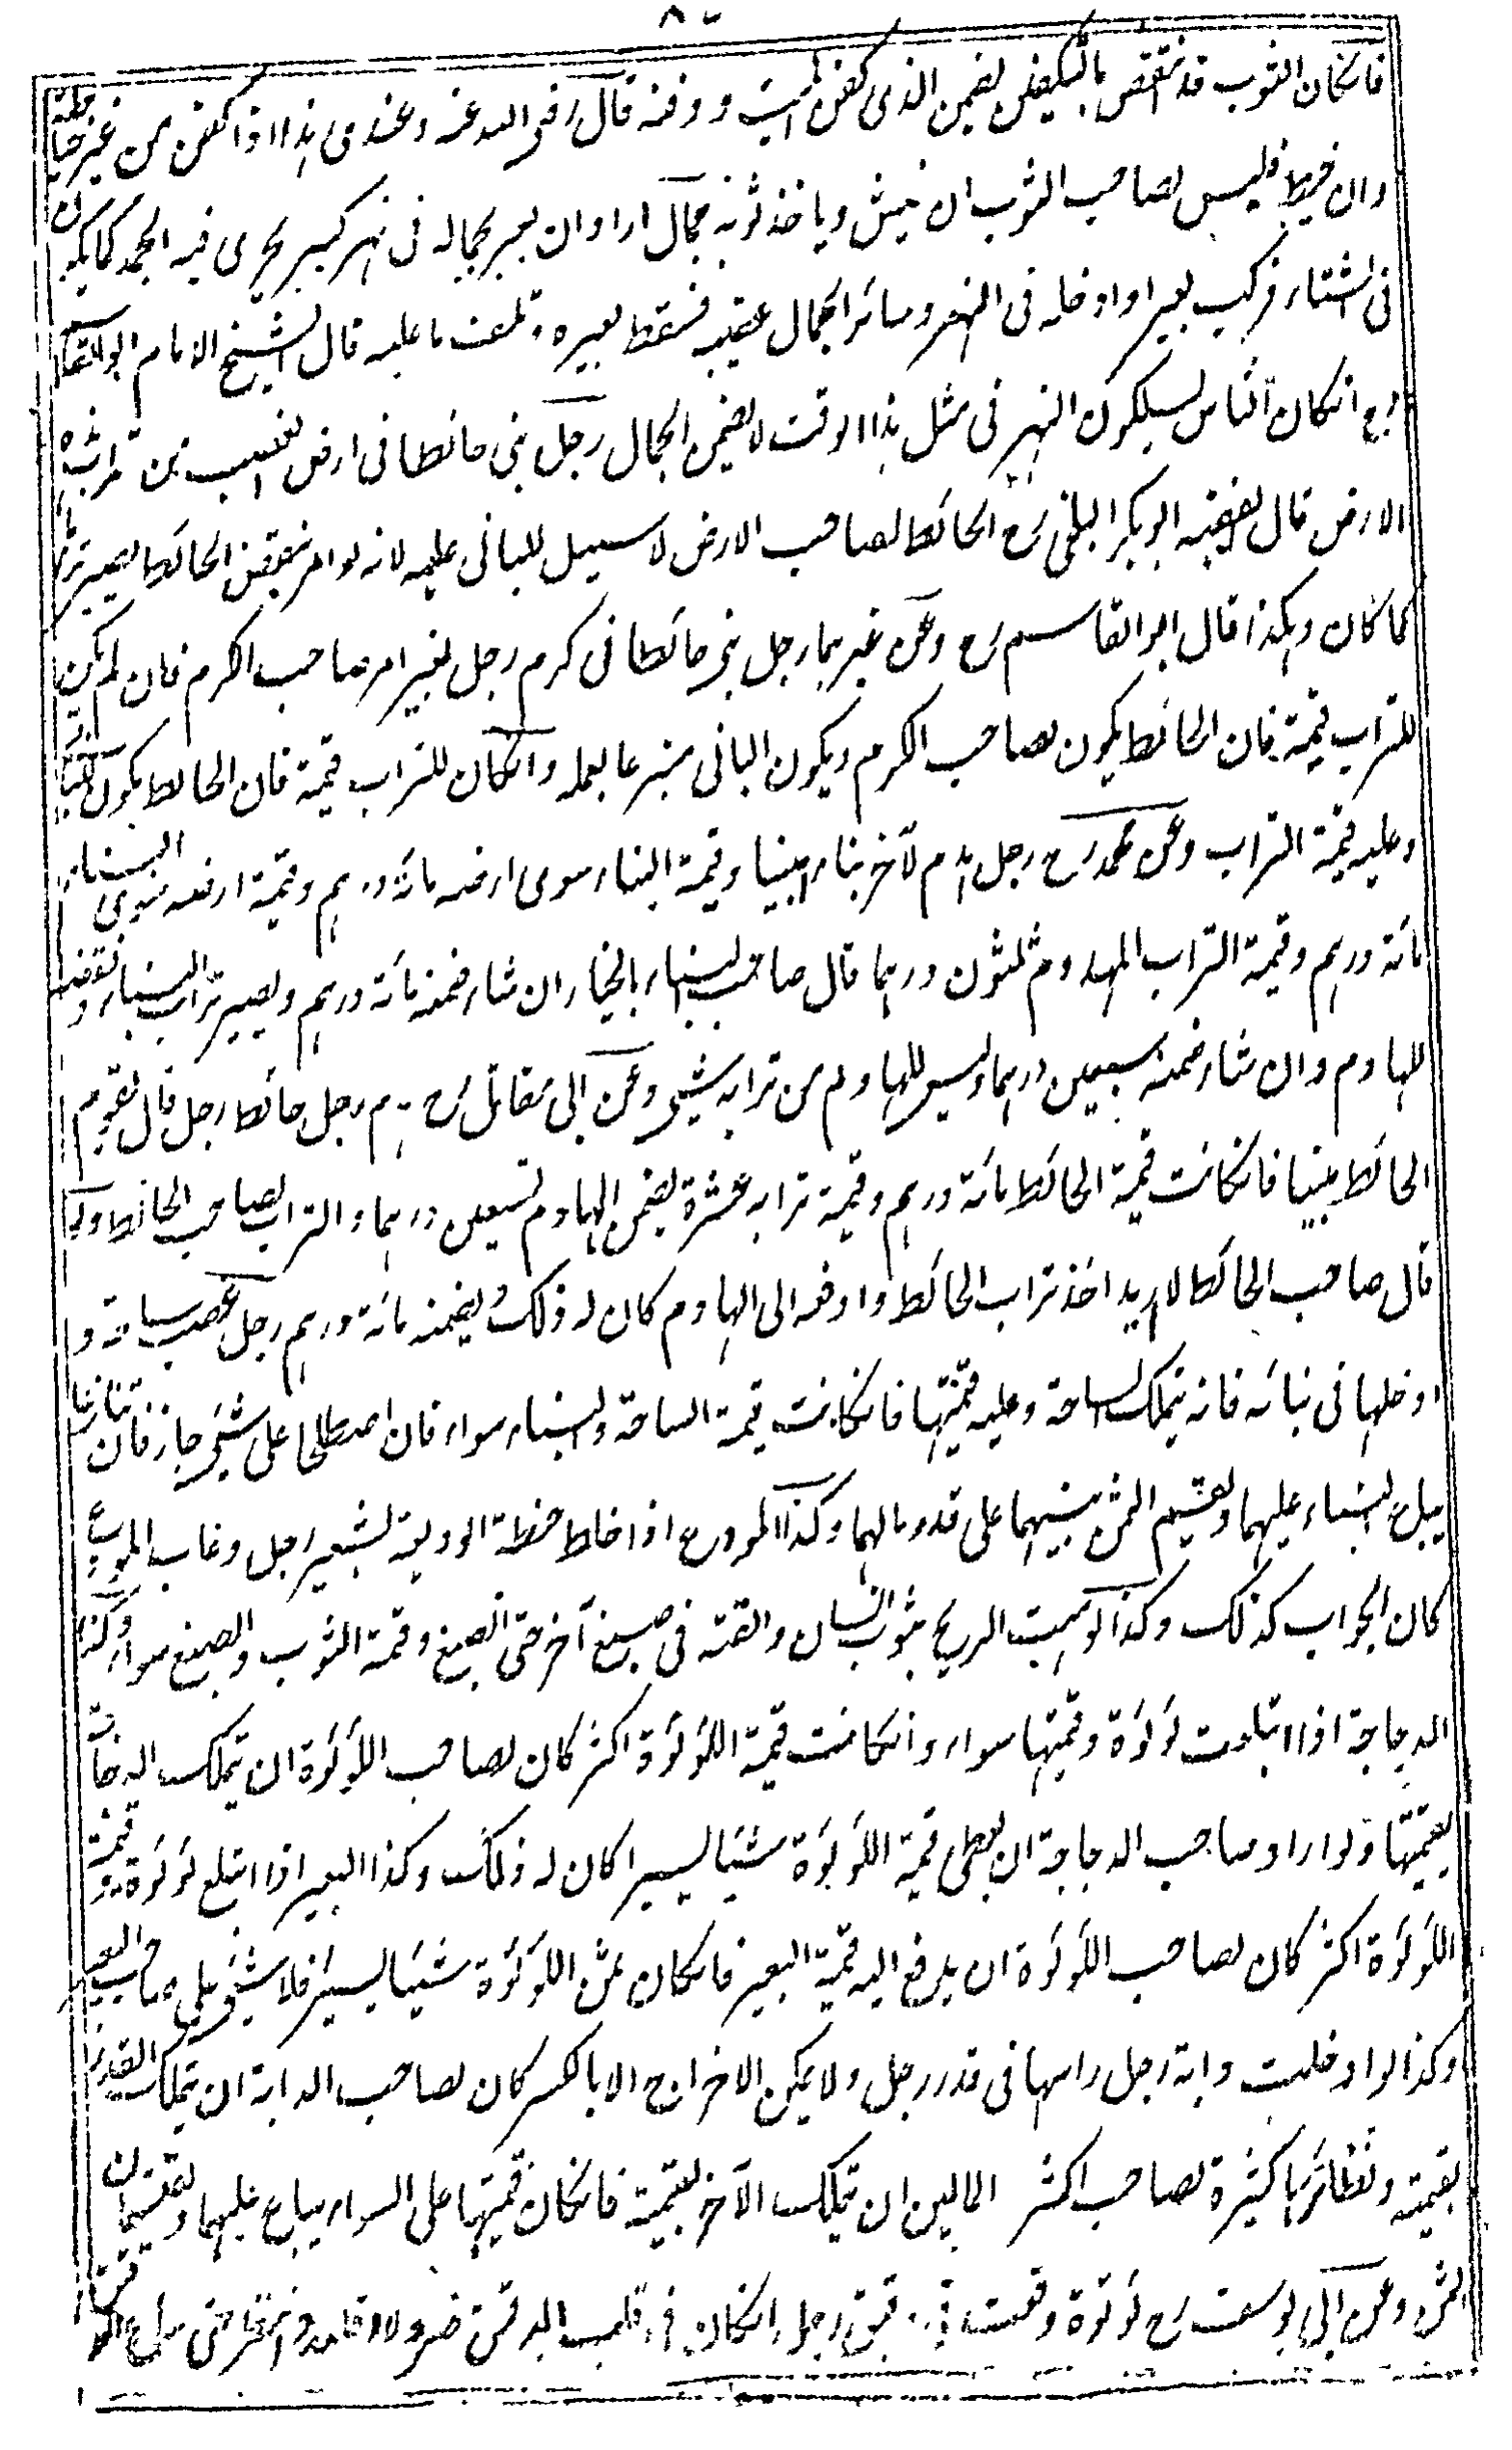 فانكان الثوب قد نتقص بالتكفين يضمن الذى كفن الميت ودفنه قال رضى الله عنه وعندى هذا اذا كفن من غير خياطة
وان خيط فليس لصاحب الثوب ان ينبش وياخذ ثوبه جمال اراد ان يعبر بجماله فى نهر كبير يجرى فيه الجمد كما يكون
فى الشتاء فركب بعيرا وادخله فى النهر وسائر الجمال عقيبه فسقط بعيره وتلفت ما عليه قال الشيخ الامام ابو القاسم
رح انكان الناس يسلكون النهر فى مثل هذا الوقت لا يضمن الجمال رجل بنى حائطا فى ارض لغصب من تراب هذه
الارض قال الفقيه ابو بكر البلخى رح الحائط لصاحب الارض لا سبيل للبانى عليه لانه لو امر بنقض الحائط يصير ترابا
كما كان وهكذا قال ابو القاسم رح وعن غيرهما رجل بنى حائطا فى كرم رجل بغير امر صاحب الكرم فان لم يكن
للتراب قيمة فان الحائط يكون لصاحب الكرم ويكون البانى متبرعا بعمله وانكان للتراب قيمة فان الحائط يكون للبانى
وعليه قيمة التراب وعن محمد رح رجل هدم لآخر بناء مبنيا وقيمة البناء سوى ارضه مائة درهم وقيمة ارضه سوى البناء
مائة درهم وقيمة التراب المهدوم ثلثون درهما قال صاحب البناء بالخيار ان شاء ضمنه مائة درهم ويصير تراب البناء ونقضه
للهادم وان شاء ضمنه سبعين درهما وليس للهادم من ترابه شئ وعن ابى مقاتل رح هدم رجل حائط رجل قال يقوم
الحائط مبنيا فانكانت قيمة الحائط مائة درهم وقيمة ترابه عشرة يضمن الهادم تسعين درهما والتراب لصاحب الحائط ولو
قال صاحب الحائط لا اريد اخذ تراب الحائط وادفعه الى الهادم كان له ذلك ويضمنه مائة درهم رجل غصب ساحة و
ادخلها فى بنائه فانه يتملك الساحة وعليه قيمتها فانكانت قيمة الساحة والبناء سواء فان اصطلحا على شئ جاز فان تنازعا
يباع البناء عليهما ويقسم الثمن بينهما على قدر مالهما وكذا المودع اذا خلط حنطة الوديعة لشعير رجل وغاب المودع
كان الجواب كذلك وكذا لو هبت الريح بثوب انسان والقته فى صبغ آخر حتى انصبغ وقيمة الثوب والصبغ سواء وكذا
الدجاجة اذا ابتلعت لؤلؤة وقيمتها سواء وانكانت قيمة اللؤلؤة اكثر كان لصاحب اللؤلؤة ان يتملك الدجاجة
بقيمتها ولو اراد صاحب الدجاجة ان يعطى قيمة اللؤلؤة شيئا يسيرا كان له ذلك وكذا البعير اذا ابتلع لؤلؤة وقيمة
اللؤلؤة اكثر كان لصاحب اللؤلؤة ان يدفع اليه قيمة البعير فانكان ثمن اللؤلؤة شيئا يسيرا فلا شئ على صاحب البعير
وكذا لو ادخلت دابة رجل راسها فى قدر رجل ولا يمكن الاخراج الا بالكسر كان لصاحب الدابة ان يتملك القدر
بقيمته ونظائرها كثيرة لصاحب اكثر المالين ان يتملك الآخر بقيمته فانكان قيمتها على السواء يباع عليهما ويقتسمان
الثمن وعن ابى يوسف رح لؤلؤة وقعت فى دقيق رجل انكان فى قلب الدقيق ضرر لا اقلبه وانتظر حتى يباع